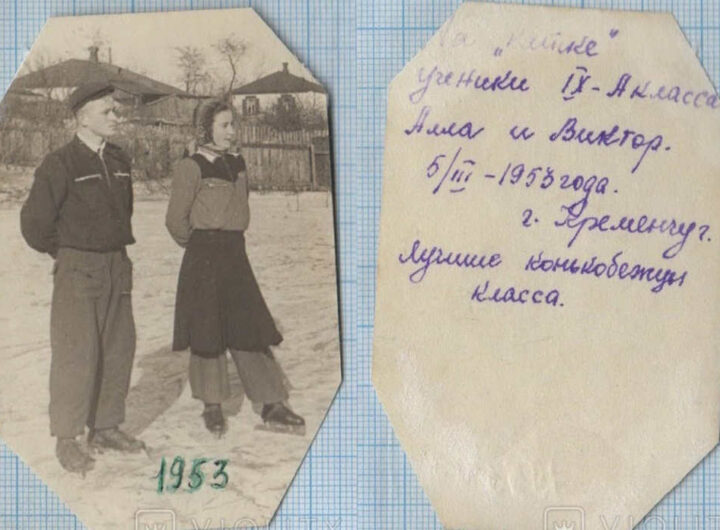 1953
На „Кетке"
ученики IX-А класса
Алла и Виктор.
5/III-1953 года.
г. Кременчуг.
Лучшие конькобежцы
класса.
VIOLITY